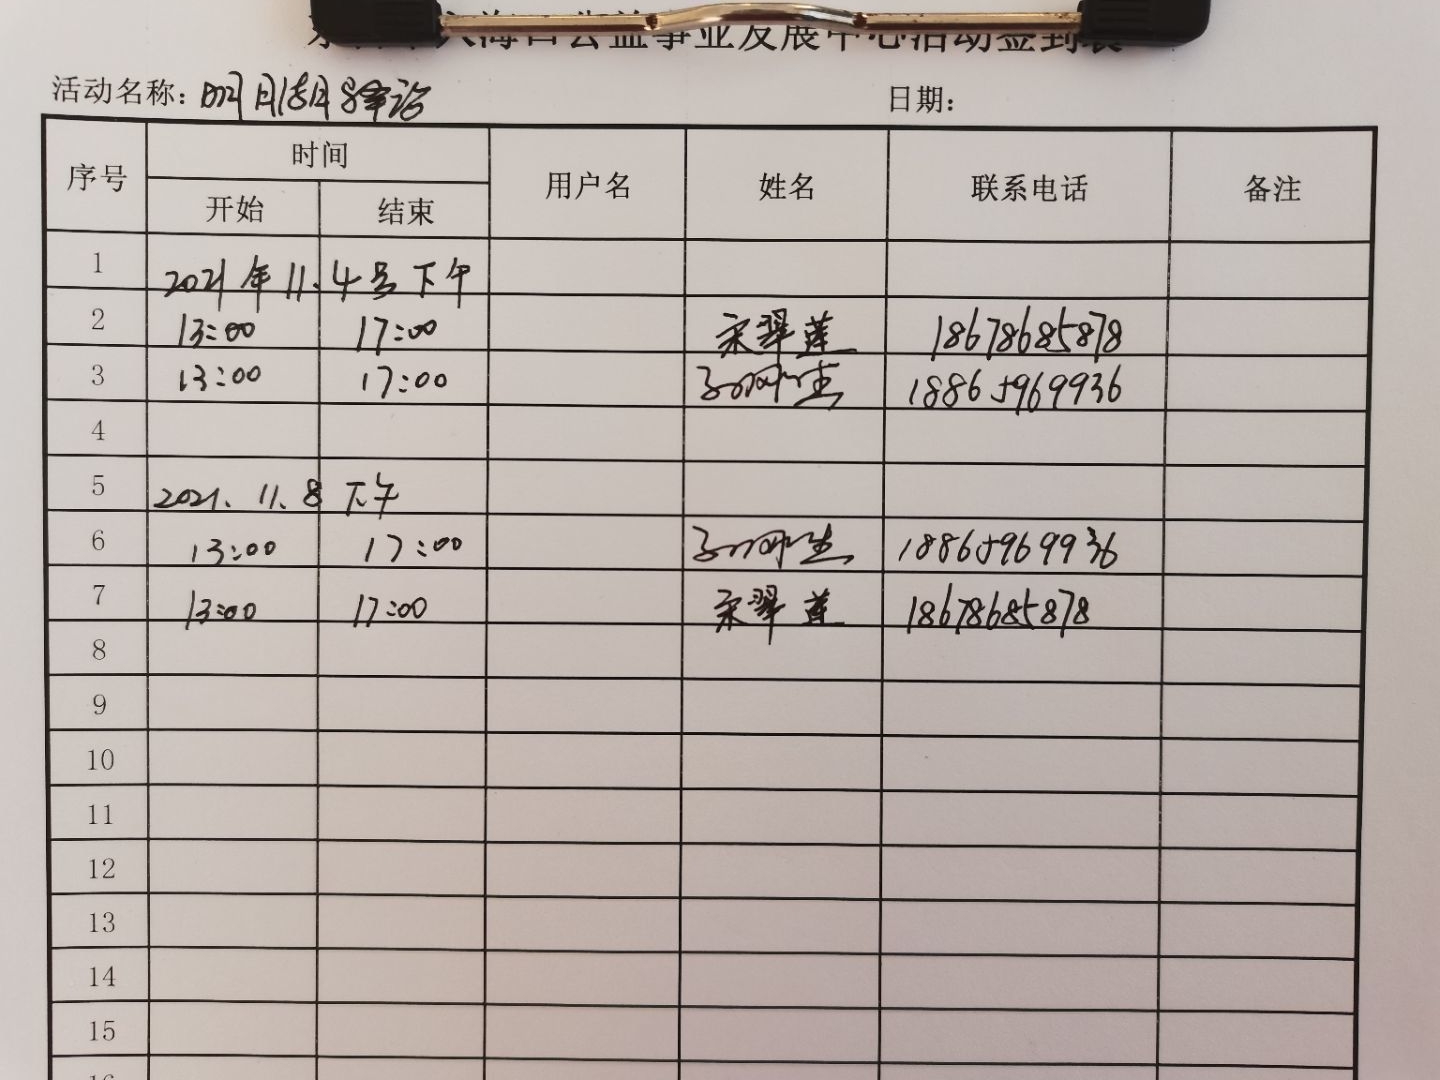 海口公益事业发展中心活动签到表
活动名称: 明月清月驿站
日期:
序号 时间 用户名 姓名 联系电话 备注
开始 结束
1 2021年11.4号下午
2 13:00 17:00 宋翠莲 18678685878
3 13:00 17:00 18865969936
4
5 2021.11.8 下午
6 13:00 17:00 18865969936
7 13:00 17:00 宋翠莲 18678685878
8
9
10
11
12
13
14
15
16